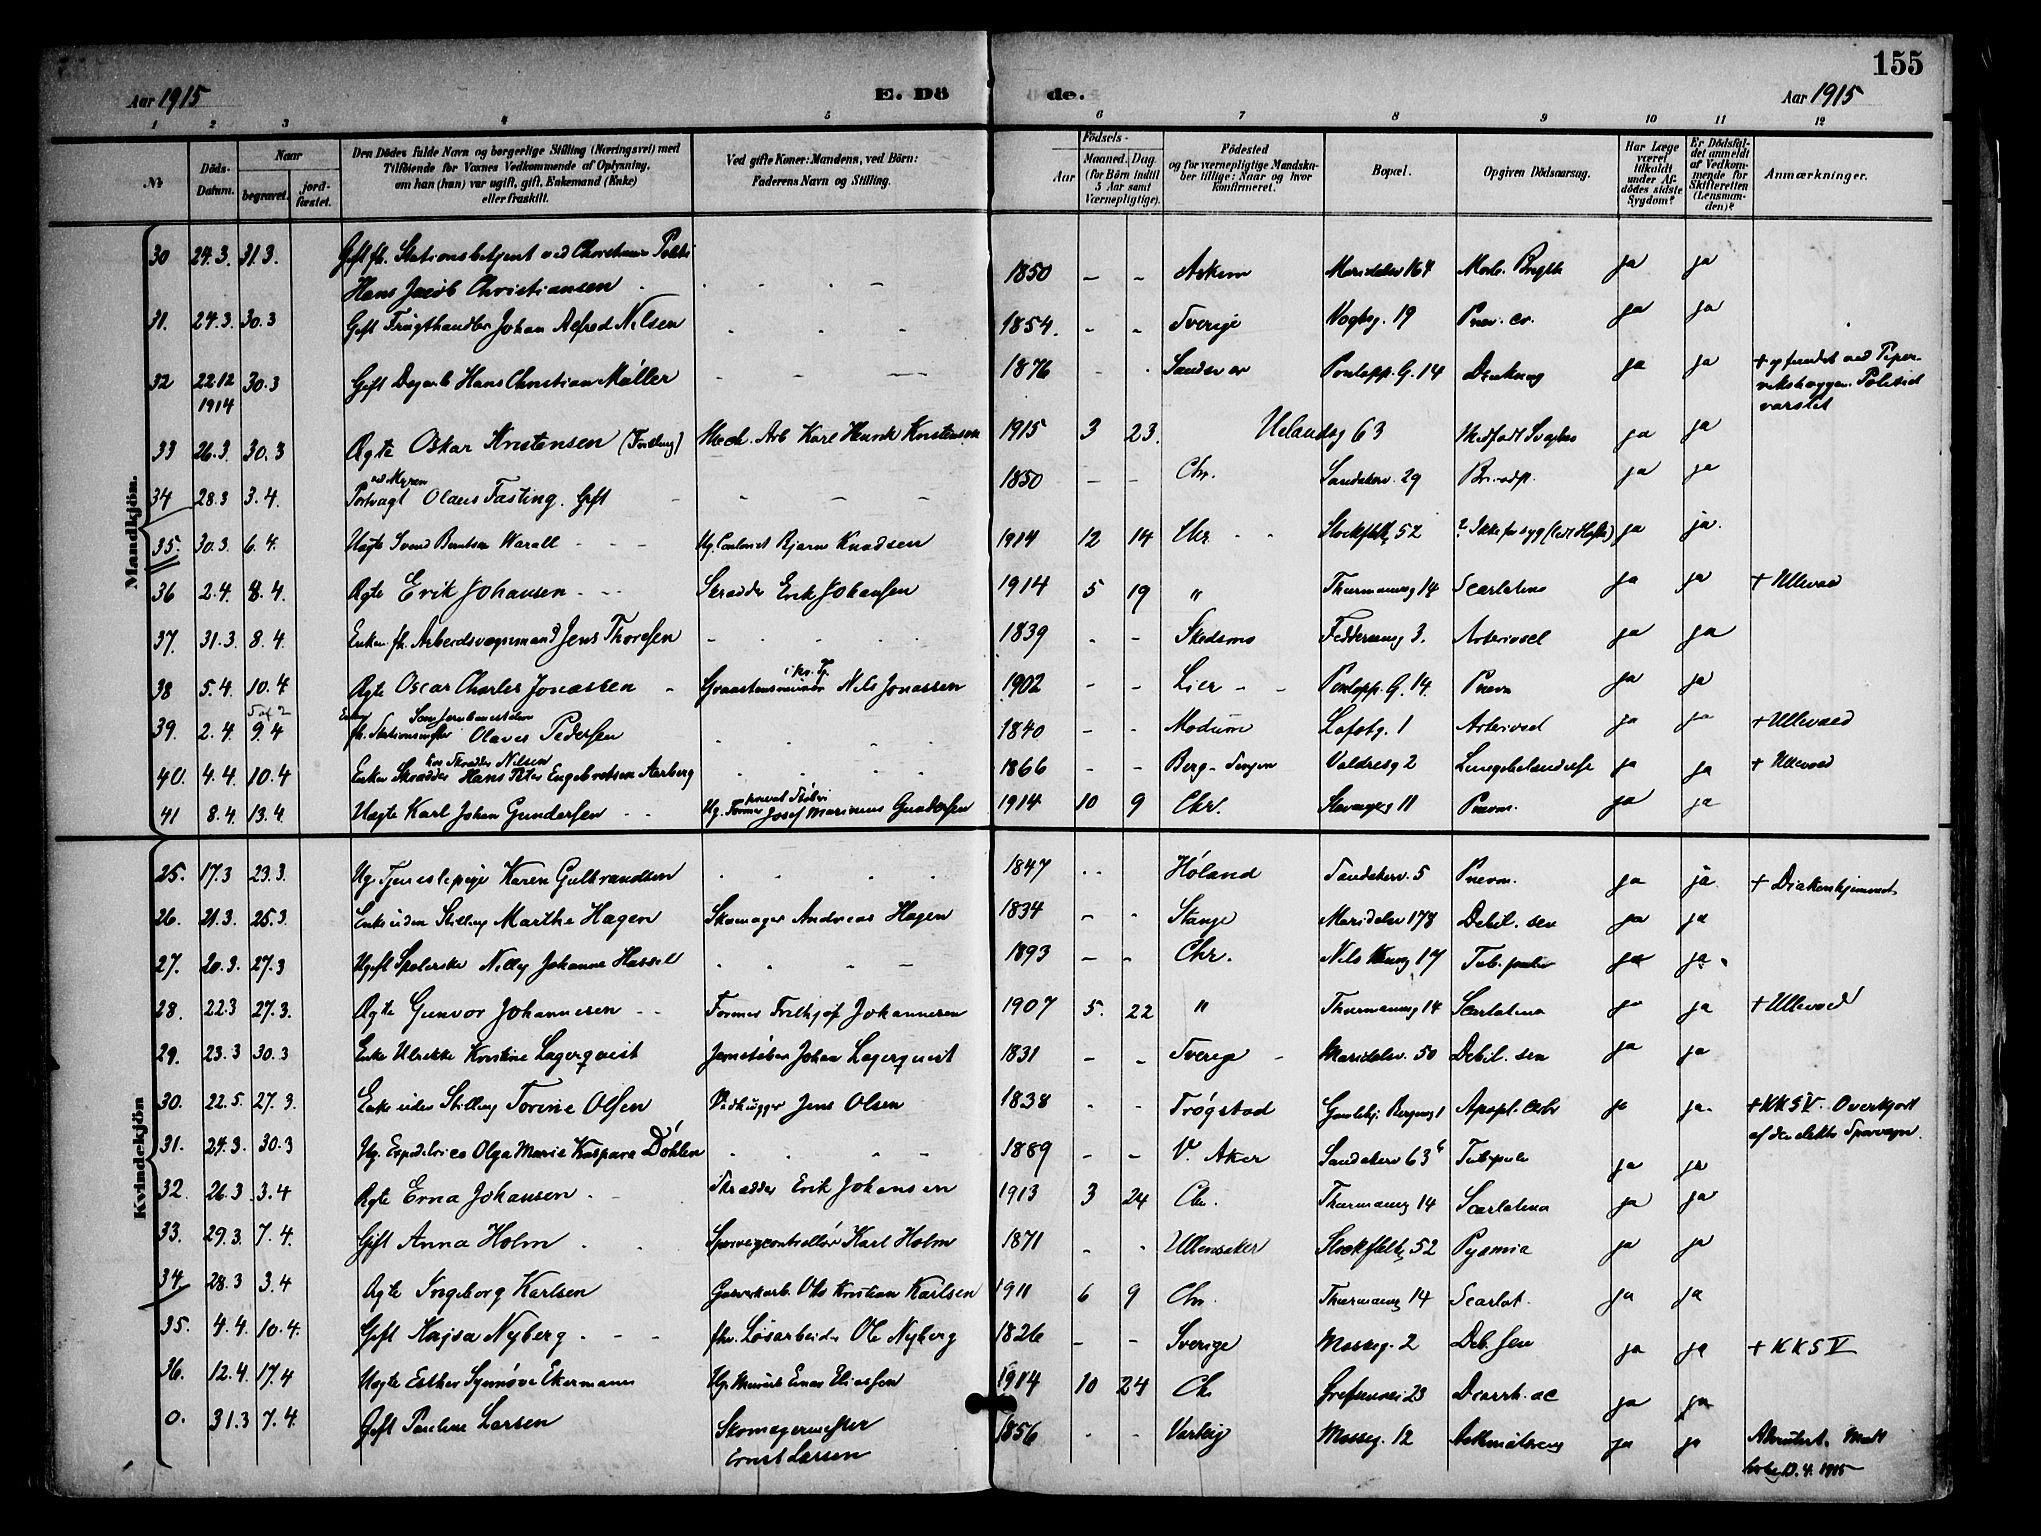 155
Aar 1915 E. Dö de. Aar 1915
1 2 3 4 5 6 7 8 9 10 11 12
No
Döds-Datum.
Naar
begravet. jordfæstet.
Den Dödes fulde Navn og borgerlige Stilling (Næringsvei) med
Tilföiende for Voxnes Vedkommende af Oplysning,
om han (hun) var ugift, gift, Enkemand (Enke)
eller fraskilt.
Ved gifte Koner: Mandens, ved Börn:
Faderens Navn og Stilling.
Födsels-
Aar Maaned. Dag.
(for Börn indtil
5 Aar samt
Værnepligtige).
Födested
og for værnepligtige Mandska-
ber tillige: Naar og hvor
konfirmeret.
Bopæl.
Opgiven Dödsaarsag.
Har Læge
været
tilkaldt
under Af-
dödes sidste
Sygdom?
Er Dödsfal-
det anmeldt
af Vedkom-
mende for
Skifteretten
(Lensman-
den)?
Anmærkninger.
Mandkjön.
30 24.3. 31.3. Gift fh. Stationsbetjent ved Christiania Politi
Hans Jacob Christiansen 1850 - - Askim Maridalsv 164 Morb. Brigth ja ja
31. 24.3. 30.3 Gift Frugthandler Johan Alfred Nilsen 1854. - - Sverige Vogtsg. 19 Pnev. cr. ja ja
32 22.12 1914 30.3 Gift Dagarb Hans Christian Müller 1876 Sandsvær Pontopp. G. 14 Drukning ja ja + opfundet ved Piper-
viksbryggen. Politiet
varslet
33 26.3. 30.3 Ægte Oskar Kristensen Mech. Arb Karl Henrik Kristensen 1915 3 23. Uelandsg 63 Medfødt Svaghed ja ja
34 28.3 3.4. ved Myren
Portvagt Olaus Fasting. Gift 1850 - - Chr. Sandakerv. 29 ja ja
35. 30.3. 6.4. Uægte Svend Berntsen Warall Ug. Contorist Bjarne Knudsen 1914 12 14 Chr Stockfletg 52 ja ja
36 2.4. 8.4. Ægte Erik Johansen Skrædder Erik Johansen 1914 5 19 " Thurmannsg 14 Scarlatina ja ja + Ullevaal
37. 31.3. 8.4. Enkem fh. Arbeidsvognmand Jens Thoresen 1839 - - Skedsmo Feddersensg 3. ja ja
38 5.4. 10.4 Ægte Oscar Charles Jonassen Graastensminør Nils Jonassen 1902 - - Lier Pontopp. G. 14. Pnevm ja ja
39. 2.4. 9.4 Enkem
fh. Stationsmester Olaves Pedersen 1840 - - Modum Lofotg. 1 ja ja + Ullevaal
40. 4.4. 10.4 hos Skrædder Nilsen
Enkem Skrædder Hans Peter Engebretsen Aarberg 1866 - - Berg - Valdresg 2 Lungebetændelse ja ja + Ullevaal
41 8.4. 13.4. Uægte Karl Johan Gundersen Ug. Former Josef Marinius Gundersen 1914 10 9 Chr. Stavangerg 11 Pnevm. ja ja
Kvindekjön
25. 17.3 23.3. Ug. Tjenestepige Karen Gulbrandsen 1847 Höland Sandakerv. 5 Pnevm. ja ja + Diakonhjemmet
26. 21.3. 25.3. Enke uden Stilling Marthe Hagen Skomager Andreas Hagen 1834 - - Stange Maridalsv 178 Debil. sen ja ja
27. 20.3. 27.3 Ugift Spolerske Nelly Johanne Hassel 1893 - - Chr. Nils 17 Tub. pulm ja ja
28. 22.3 27.3. Ægte Gunvor Johannesen Former Fridthjof Johannesen 1907 5. 22 " Thurmannsg 14 Scarlatina ja ja + Ullevaal
29. 23.3 30.3 Enke Ulrikke Kristine Lagerqvist Jernstøber Johan Lagerqvist 1831 - - Sverige Maridalsv. 50 Debil. sen ja ja
30. 22.5. 27.3. Enke uden Stilling Torine Olsen Vedhugger Jens Olsen 1838 Trögstad Apopl. cerebr ja ja + KKSV. Overkjørt
af den elektr. Sporvogn.
31. 24.3. 30.3 Ug. Expeditrice Olga Marie Kaspara Döhlen 1889 - - V. Aker Sandakerv 63b Tub. pulm ja ja
32. 26.3. 3.4 Ægte Erna Johansen Skrædder Erik Johansen 1913 3 24 Chr. Thurmannsg 14 Scarlatina ja ja
33. 29.3. 7.4. Gift Anna Holm Sporveiscontrollør Karl Holm 1871 - - Ullensaker Stockfletg 52 Pyæmia ja ja
34. 28.3 3.4 Ægte Ingeborg Karlsen Gasverkarb. Ole Kristian Karlsen 1911 6 9 Chr. Thurmannsg 14 Scarlat. ja ja
35. 4.4. 10.4. Gift Kajsa Nyberg fhv. Løsarbeider Ole Nyberg 1826 - - Sverige Mosseg. 2 Deb. sen ja ja + KKSV
36. 12.4. 17.4 Uægte Esther Synnøve Ekermann Ug. Einar Eliassen 1914 10 24 Chr Grefsenvei 23 Diarrh. ac ja ja
0. 31.3 7.4. Gift Pauline Larsen Skomagermester
Ernst Larsen 1856 - - Varteig Mosseg. 12 ja ja 13.4.1915